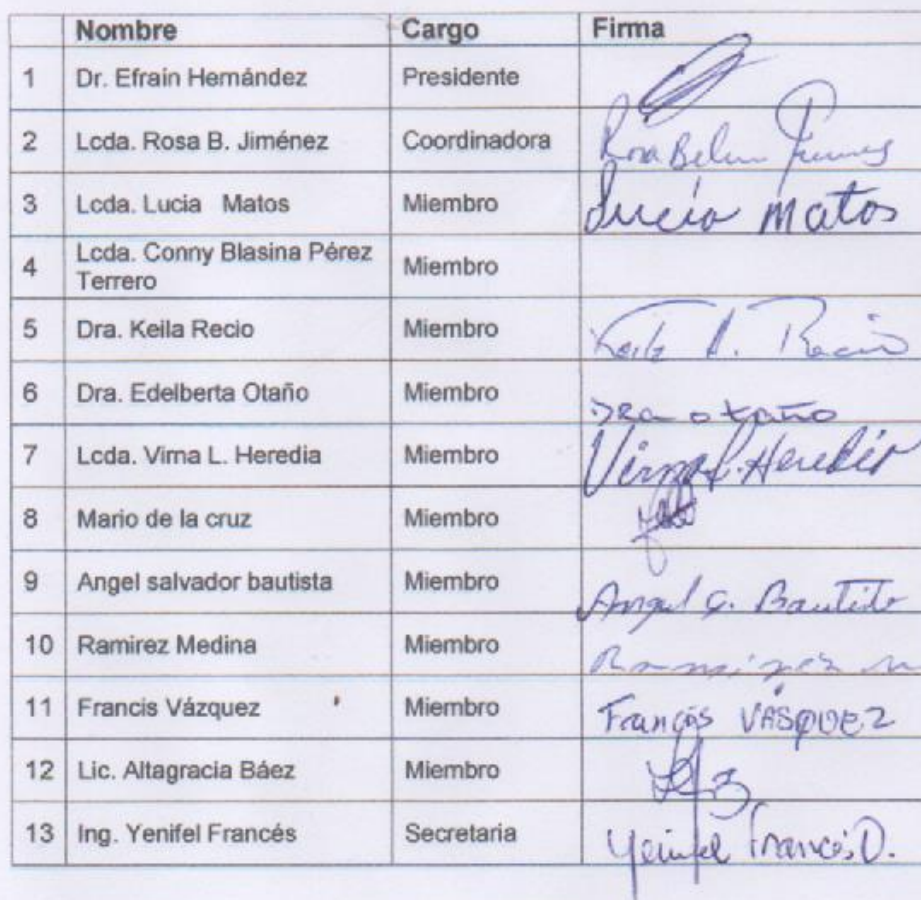 Nombre Cargo Firma
1 Dr. Efrain Hernández Presidente
2 Lcda. Rosa B. Jiménez Coordinadora Rosa Belen
3 Lcda. Lucia Matos Miembro Lucía Matos
4 Lcda. Conny Blasina Pérez
Terrero Miembro
5 Dra. Keila Recio Miembro Keila A. Recio
6 Dra. Edelberta Otaño Miembro DRa Otaño
7 Lcda. Virna L. Heredia Miembro Virna L. Heredia
8 Mario de la cruz Miembro
9 Angel salvador bautista Miembro Angel S. Bautista
10 Ramirez Medina Miembro Ramirez m
11 Francis Vázquez Miembro Francis VÁSQUEZ
12 Lic. Altagracia Báez Miembro
13 Ing. Yenifel Francés Secretaria Yenifel Francés D.